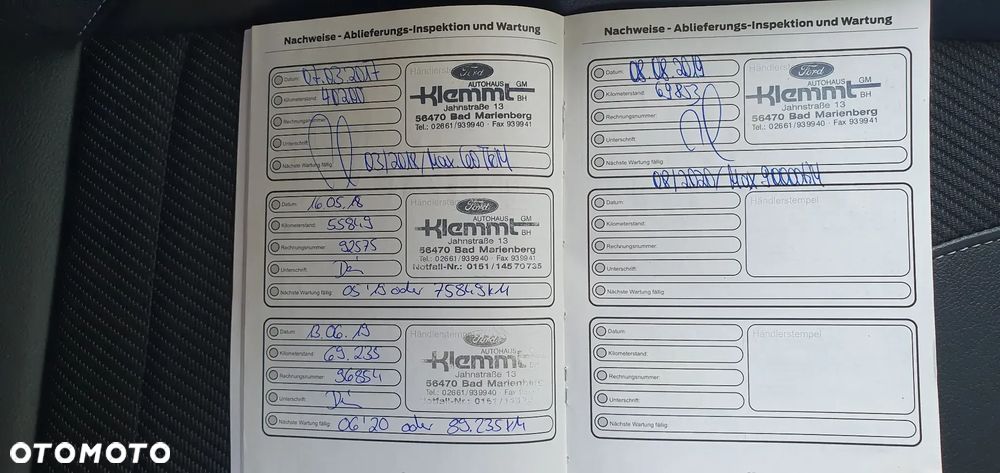 Nachweise - Ablieferungs-Inspektion und Wartung
Datum: 07.03.2017
Kilometerstand: 40200
Rechnungsnummer:
Unterschrift:
Nächste Wartung fällig: 03/2018/Max. 60TKM
Händlerstempel
Ford
AUTOHAUS GM
Klemmt BH
Jahnstraße 13
56470 Bad Marienberg
Tel.: 02661/939940 · Fax 939941
Datum: 16.05.18
Kilometerstand: 55849
Rechnungsnummer: 92575
Unterschrift:
Nächste Wartung fällig: 05'19 oder 75849KM
Ford
AUTOHAUS GM
Klemmt BH
Jahnstraße 13
56470 Bad Marienberg
Tel.: 02661/939940 · Fax 939941
Notfall-Nr.: 0151/14570735
Datum: 13.06.19
Kilometerstand: 69.235
Rechnungsnummer: 96854
Unterschrift:
Nächste Wartung fällig: 06'20 oder 89.235KM
Händlerstempel
Ford
AUTOHAUS
Klemmt
Jahnstraße 13
56470 Bad Marienberg
Tel.: 02661/939940 · Fax
Notfall-Nr.: 0151/
Nachweise - Ablieferungs-Inspektion und Wartung
Datum: 08.08.2019
Kilometerstand: 69853
Rechnungsnummer:
Unterschrift:
Nächste Wartung fällig:
08/2020/ Max. 90000KM
Händlerstempel
Ford
AUTOHAUS GM
Klemmt BH
Jahnstraße 13
56470 Bad Marienberg
Tel.: 02661/939940 · Fax 939941
Datum:
Kilometerstand:
Rechnungsnummer:
Unterschrift:
Nächste Wartung fällig:
Händlerstempel
Datum:
Kilometerstand:
Rechnungsnummer:
Unterschrift:
Nächste Wartung fällig:
Händlerstempel
OTOMOTO